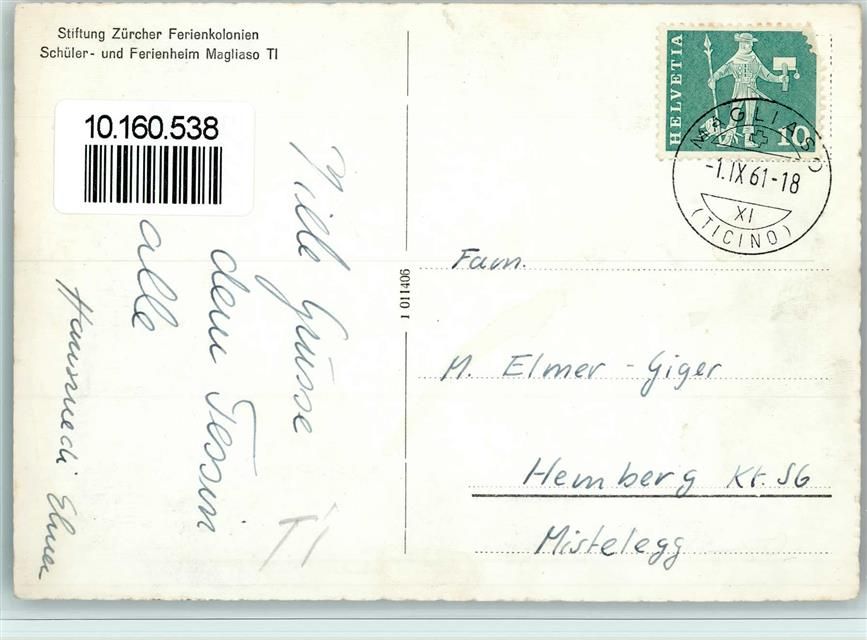 Stiftung Zürcher Ferienkolonien
Schüler- und Ferienheim Magliaso TI
10.160.538
Mille Grüsse
dem Tessin
alle
Hansruedi Elmer
TI
1 011406
HELVETIA
10
MAGLIASO
-1.IX 61-18
XI
(TICINO)
Fam.
M. Elmer - Giger
Hemberg Kt. SG
Mistelegg